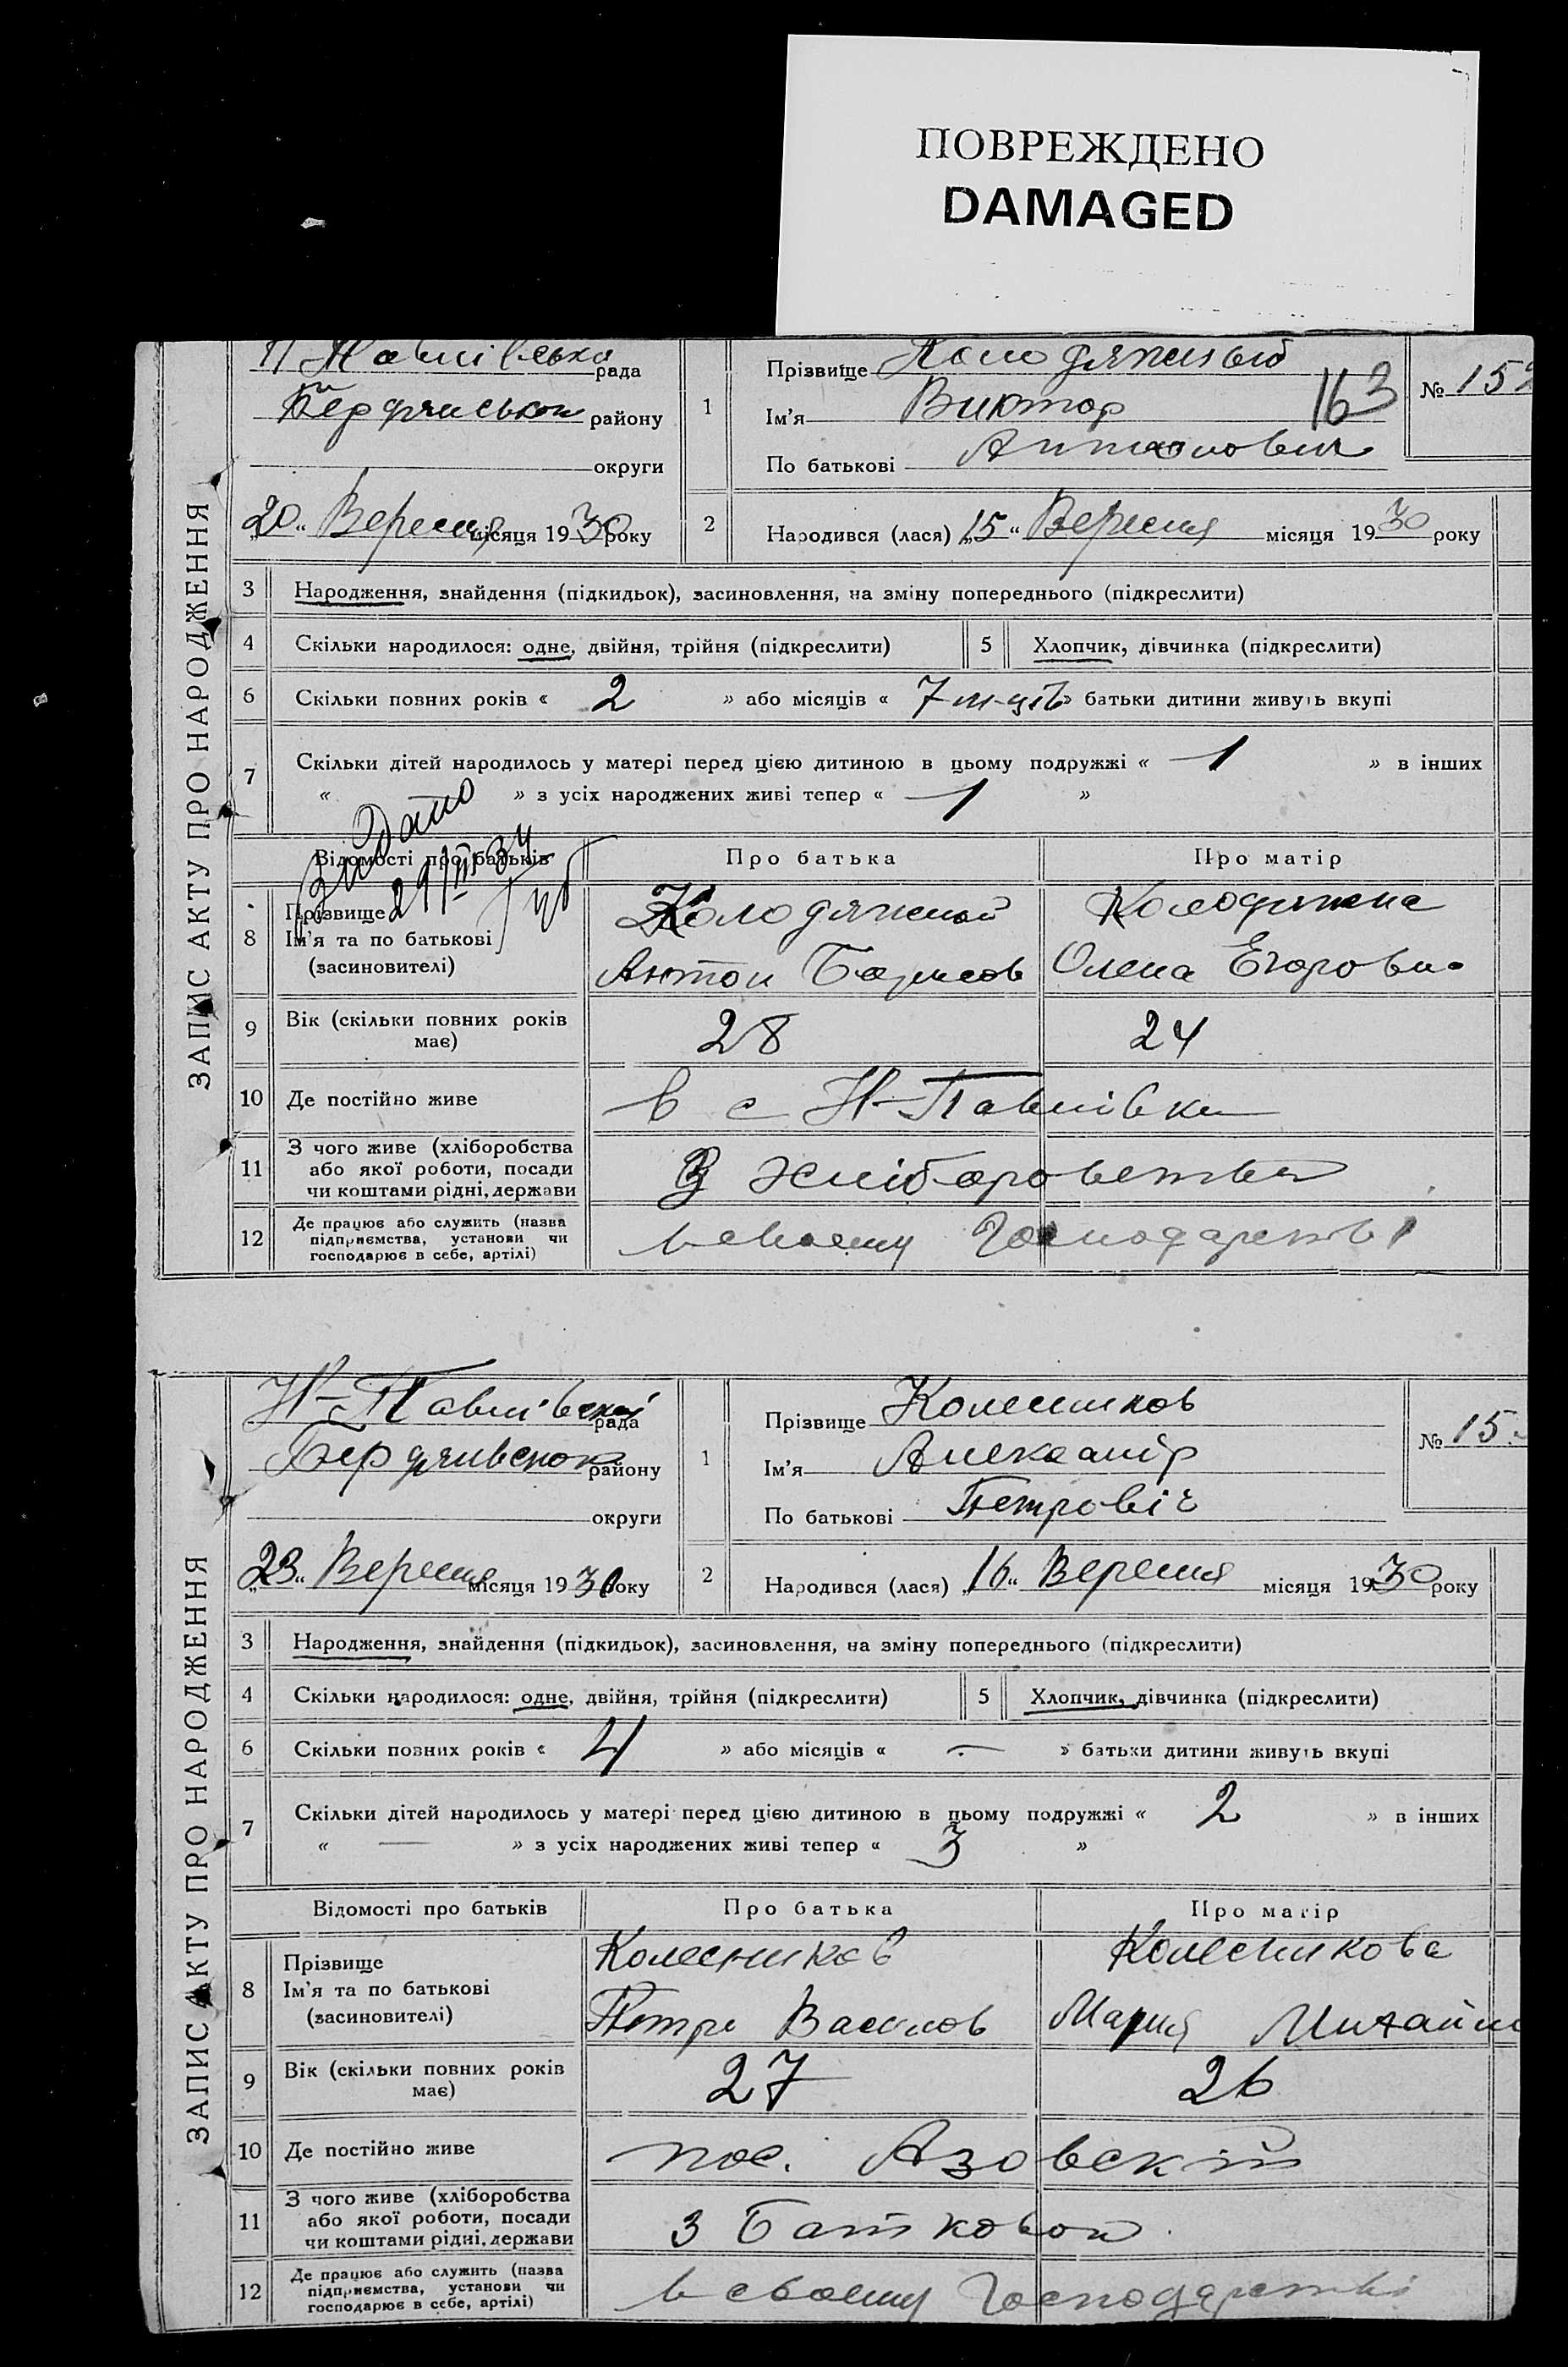 ПОВРЕЖДЕНО
DAMAGED
Павлівська рада
Бердянськои району
округи
„20“ Вересня місяця 1930 року
1
Прізвище Колодяжный
Ім'я Виктор 163
По батькові Антонович
№ 152
2
Народився (лася) „15“ Вересня місяця 1930 року
ЗАПИС АКТУ ПРО НАРОДЖЕННЯ
3 Народження, знайдення (підкидьок), засиновлення, на зміну попереднього (підкреслити)
4 Скільки народилося: одне, двійня, трійня (підкреслити) 5 Хлопчик, дівчинка (підкреслити)
6 Скільки повних років « 2 » або місяців « 7 м-ців » батьки дитини живуть вкупі
7 Скільки дітей народилось у матері перед цією дитиною в цьому подружжі « 1 » в інших
« » з усіх народжених живі тепер « 1 »
Видано
29/III-34
Відомості про батьків Про батька Про матір
8 Прізвище Колодяжной Колодяжна
Ім'я та по батькові
(засиновителі) Антон Борисов Олена Егоровна
9 Вік (скільки повних років
має) 28 24
10 Де постійно живе в с Н-Павлівки
11 З чого живе (хліборобства
або якої роботи, посади
чи коштами рідні, держави
З хлібаровства
12 Де працює або служить (назва
підприємства, установи чи
господарює в себе, артілі)
в своему Господарстві
Н-Павлівськоі рада
району
округи
„23“ Вересня місяця 1930 року
1
Прізвище Колесников
Ім'я
По батькові Петровіч
№ 15
2
Народився (лася) „16“ Вересня місяця 1930 року
ЗАПИС АКТУ ПРО НАРОДЖЕННЯ
3 Народження, знайдення (підкидьок), засиновлення, на зміну попереднього (підкреслити)
4 Скільки народилося: одне, двійня, трійня (підкреслити) 5 Хлопчик, дівчинка (підкреслити)
6 Скільки повних років « 4 » або місяців « — » батьки дитини живуть вкупі
7 Скільки дітей народилось у матері перед цією дитиною в цьому подружжі « 2 » в інших
« — » з усіх народжених живі тепер « 3 »
Відомості про батьків Про батька Про матір
8 Прізвище Колесников Колесникова
Ім'я та по батькові
(засиновителі) Петро Василов Мария Михайл
9 Вік (скільки повних років
має) 27 26
10 Де постійно живе пос. Азовский
11 З чого живе (хліборобства
або якої роботи, посади
чи коштами рідні, держави
З
12 Де працює або служить (назва
підприємства, установи чи
господарює в себе, артілі)
в своему Господарстві